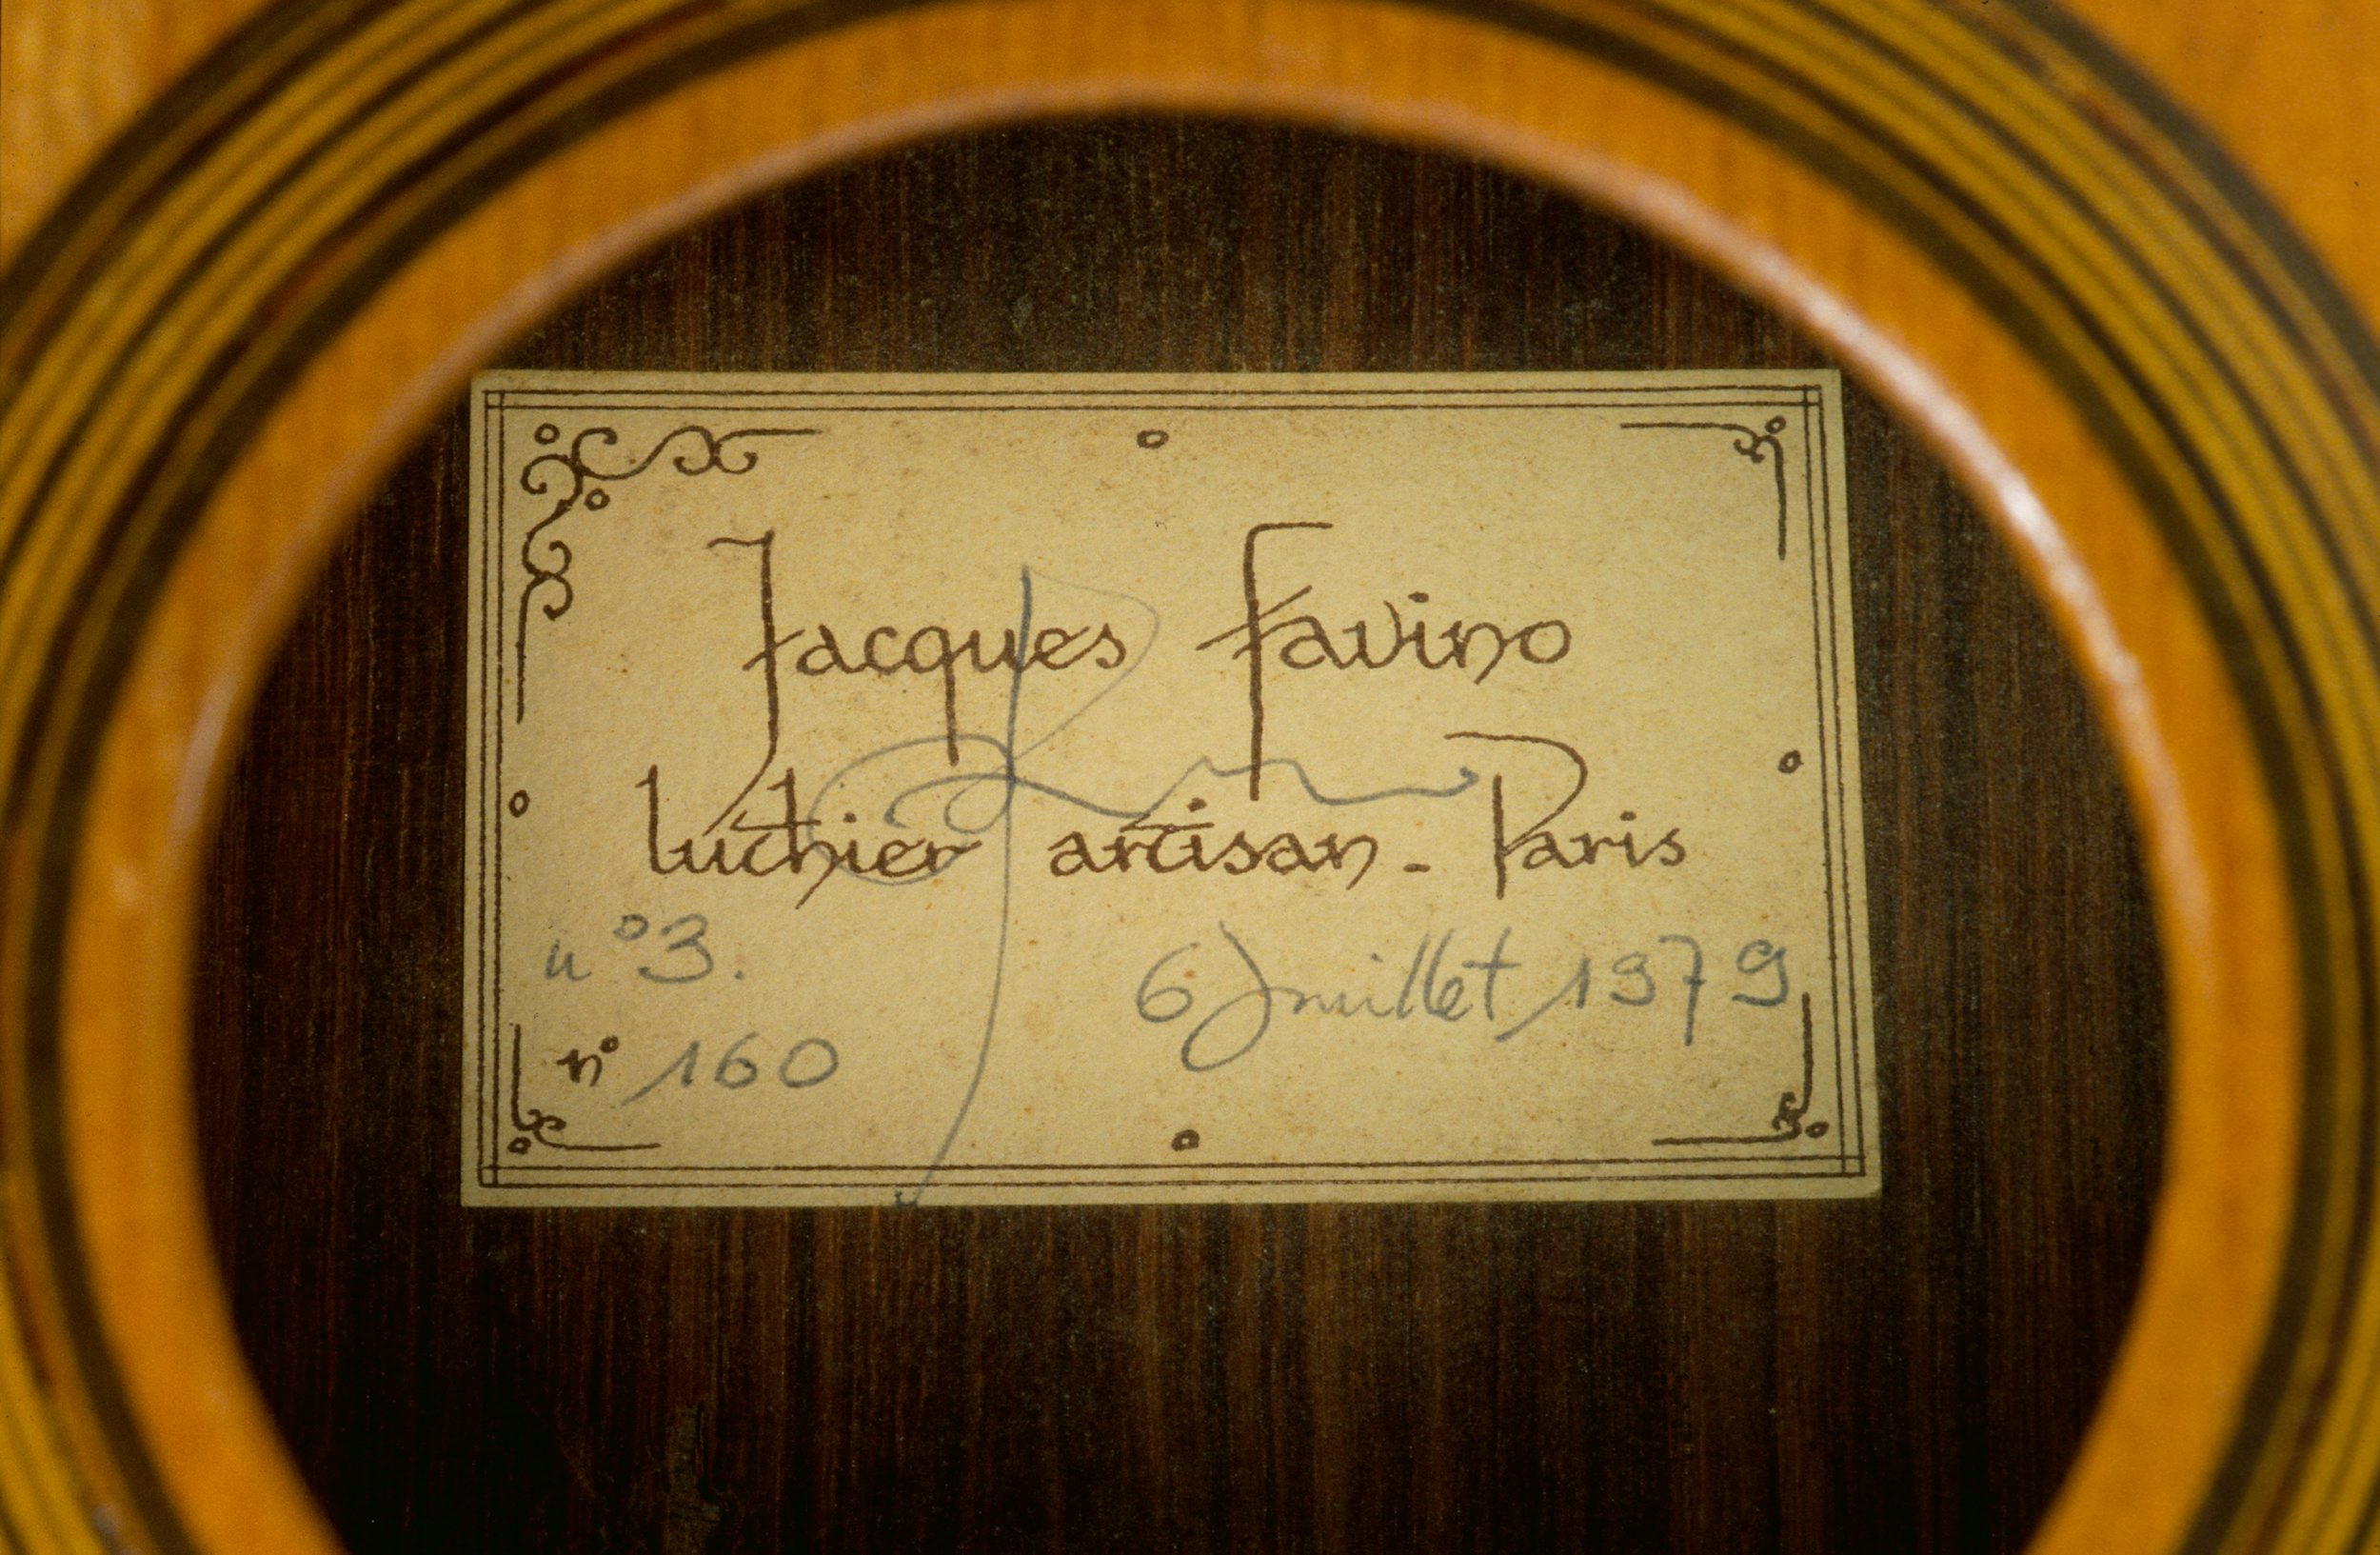 Jacques Favino
luthier artisan - Paris
n°3.
6 Juillet 1979
n° 160